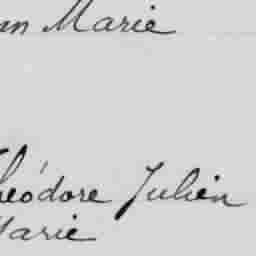 Marie
Théodore Julien
Marie